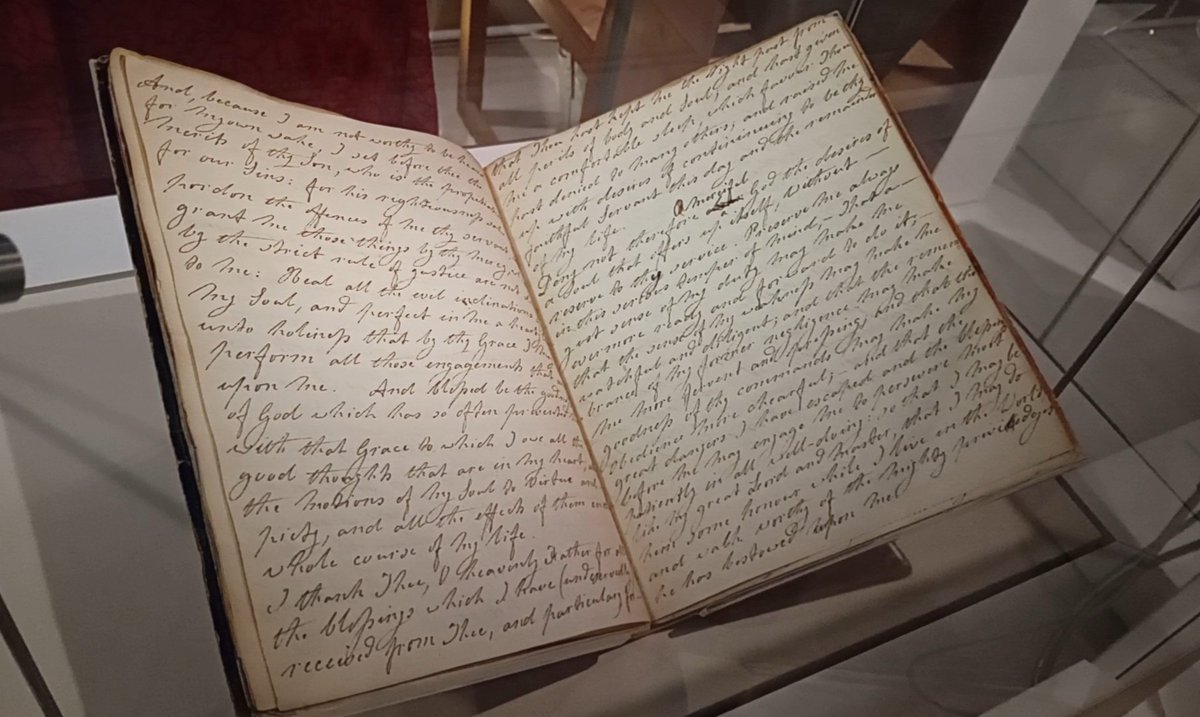 And, because I am not worthy to be
for my own sake, I set before thee the
merits of thy Son, who is the propitiation
for our Sins: for his righteousness
pardon the offences of me thy servant
grant me those things by thy mercy,
by the strict rule of justice are not
to me: Heal all the evil inclinations
my Soul, and perfect in me a
unto holiness that by thy Grace I
perform all those engagements that
upon me. And blessed be the
of God which has so often prevented
with that Grace to which I owe all the
good thoughts that are in my heart,
the motions of my Soul to Virtue and
piety, and all the effects of them in
whole course of my life.
I thank Thee, O heavenly Father for
the blessings which I have (undeservedly
received from Thee, and particulary for
that Thou hast kept me the Night past from
all perils of body and Soul; and hast given
me a comfortable sleep, which favour Thou
hast denied to many others; and raised me
up with desires of continueing to be thy
faithful Servant this day and the remainder
of my life.
Deny not therefore O merciful God the desires of
a Soul that offers up itself, without
reserve to thy service. Preserve me always
in this serious temper of mind,- That a
just sense of my duty may make me
evermore ready and forward to do it,
that the sense of my weakness may make me
watchful and diligent; and that the remem
brance of my former negligence may make
me more fervent and pressing and that the
goodness of thy commands may make my
Obedience more chearful; and that the
great dangers I have escaped and the blessings
before me may engage me to persevere most
patiently in all well-doing; so that I may be
like my great Lord and Master, that I may do
him some honour while I live in the World
and walk worthy of the mighty
he has bestowed upon me